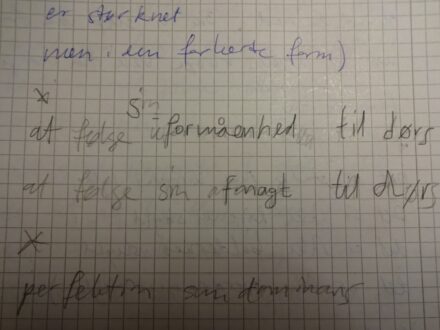 er størknet
men i den forkerte form)
*
sin
at følge uformåenhed til dørs
at følge sin afmagt til dørs
*
perfektion som dominans